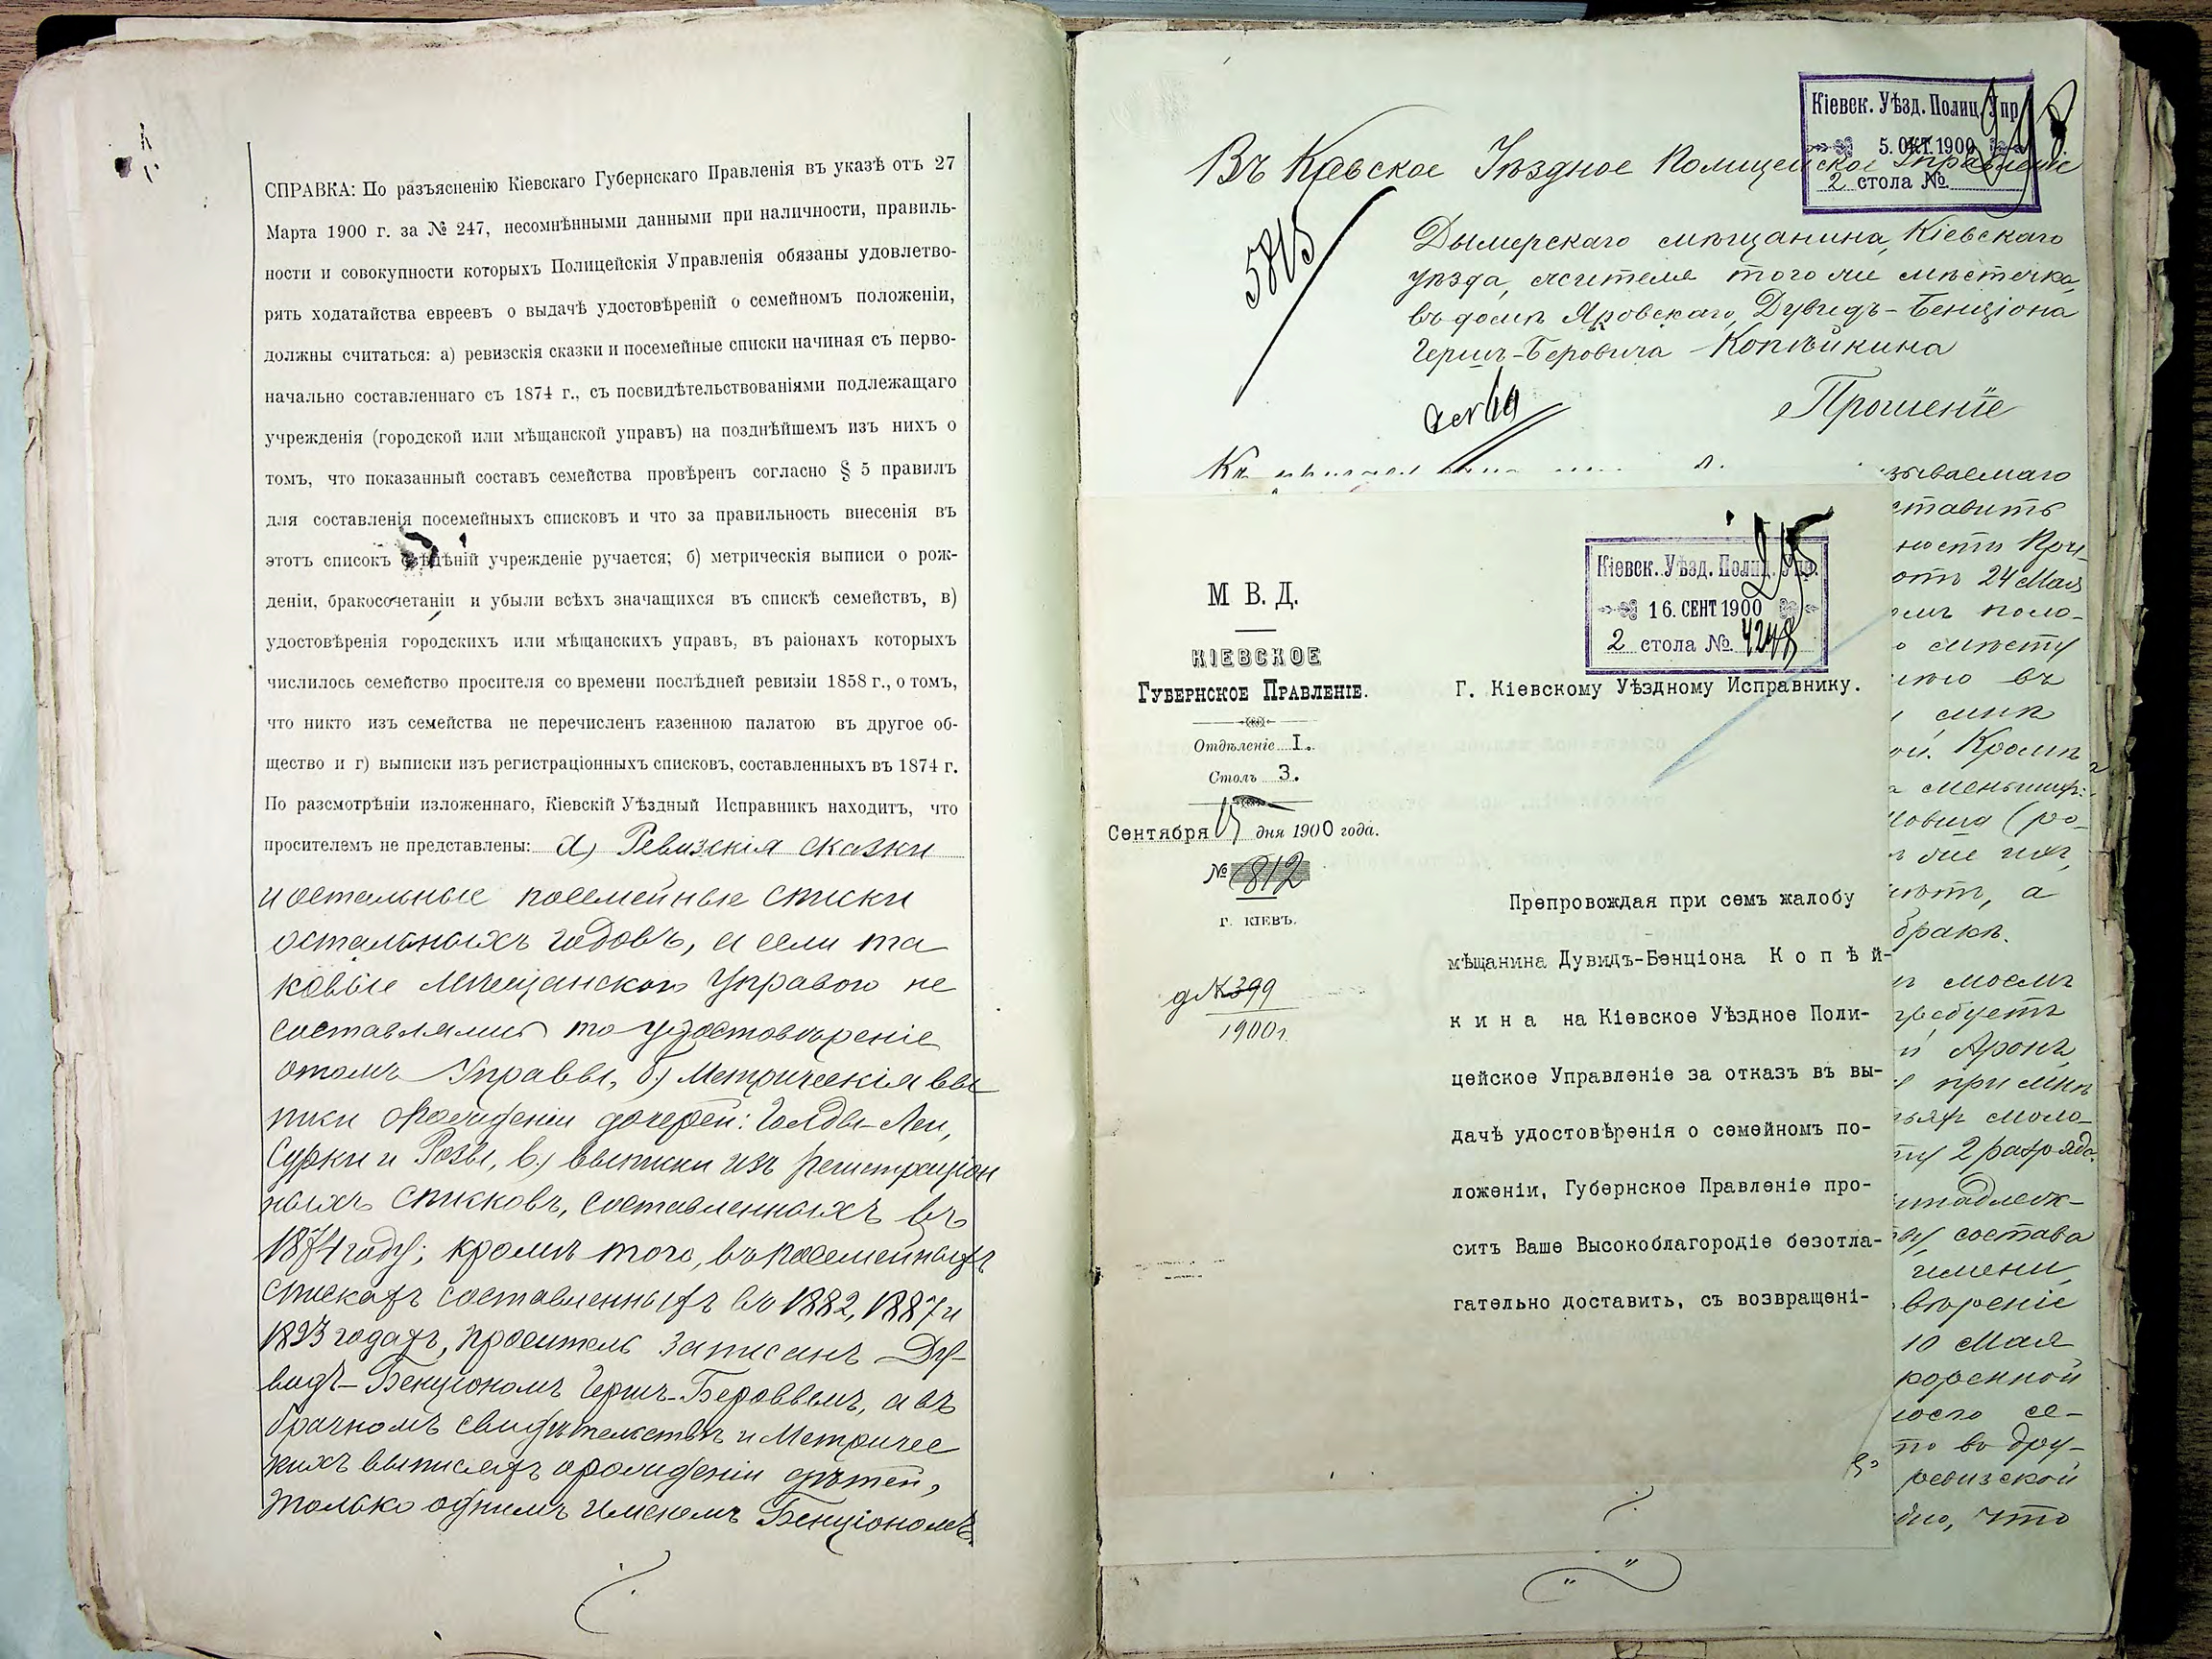 СПРАВКА: По разъясненію Кіевскаго Губернскаго Правленія въ указѣ отъ 27
Марта 1900 г. за № 247, несомнѣнными данными при наличности, правиль-
ности и совокупности которыхъ Полицейскія Управленія обязаны удовлетво-
рять ходатайства евреевъ о выдачѣ удостовѣреній о семейномъ положеніи,
должны считаться: а) ревизскія сказки и посемейные списки начиная съ перво-
начально составленнаго съ 1874 г., съ посвидѣтельствованіями подлежащаго
учрежденія (городской или мѣщанской управъ) на позднѣйшемъ изъ нихъ о
томъ, что показанный составъ семейства провѣренъ согласно § 5 правилъ
для составленія посемейныхъ списковъ и что за правильность внесенія въ
этотъ списокъ свѣдѣній учрежденіе ручается; б) метрическія выписи о рож-
деніи, бракосочетаніи и убыли всѣхъ значащихся въ спискѣ семействъ, в)
удостовѣренія городскихъ или мѣщанскихъ управъ, въ раіонахъ которыхъ
числилось семейство просителя со времени послѣдней ревизіи 1858 г., о томъ,
что никто изъ семейства не перечисленъ казенною палатою въ другое об-
щество и г) выписки изъ регистраціонныхъ списковъ, составленныхъ въ 1874 г.
По разсмотрѣніи изложеннаго, Кіевскій Уѣздный Исправникъ находитъ, что
просителемъ не представлены: а) Ревизскія сказки
и остальные посемейные списки
остальныхъ годовъ, а если та
ковые Мѣщанскою Управою не
составлялись то удостовѣреніе
отомъ Управы, б) Метрическія вы
писки о рожденіи дочерей: Голды-Леи,
Сурки и Розы, в) выписки изъ регистраціон
ныхъ списковъ, составленныхъ въ
1874 году; кромѣ того, въ посемейныхъ
спискахъ составленныхъ въ 1882, 1887 и
1893 годахъ, проситель записанъ Ду-
видъ-Бенціономъ Гершъ-Беровымъ, а въ
брачномъ свидѣтельствѣ и Метричес
кихъ выписяхъ о рожденіи дѣтей,
только однимъ именемъ Бенціономъ.
Кіевск. Уѣзд. Полиц. Упр.
5. ОКТ. 1900
2 стола №
Въ Кіевское Уѣздное Полицейское Управленіе
5815
Дымерскаго мѣщанина, Кіевскаго
уѣзда, жителя того же мѣстечка,
въ домѣ Яровскаго, Дувидъ-Бенціона
Гершъ-Беровича Копѣйкина
Прошеніе
зываемаго
ставить
ности При-
отъ 24 Мая
омъ поло-
о мѣсту
въ
мнѣ
ой. Кромѣ
меньшихъ
ловича (ро-
а
бракѣ.
моемъ
требуетъ
и Аронъ,
при мнѣ
тьяхъ моло-
2 разряда.
надлеж-
состава
имени,
вѣреніе
10 Мая
коренной
моего се-
то въ дру-
ревизской
что
Кіевск. Уѣзд. Полиц. Упр.
16. СЕНТ 1900
2 стола № 4248
М. В. Д.
КІЕВСКОЕ
ГУБЕРНСКОЕ ПРАВЛЕНІЕ.
Отдѣленіе I.
Столъ 3.
Сентября 15 дня 1900 года.
№ 1812
Г. КІЕВЪ.
д № 399
1900 г.
Г. Кіевскому Уѣздному Исправнику.
Препровождая при семъ жалобу
мѣщанина Дувидъ-Бенціона К о п ѣ й-
к и н а на Кіевское Уѣздное Поли-
цейское Управленіе за отказъ въ вы-
дачѣ удостовѣренія о семейномъ по-
ложеніи, Губернское Правленіе про-
ситъ Ваше Высокоблагородіе безотла-
гательно доставить, съ возвращені-